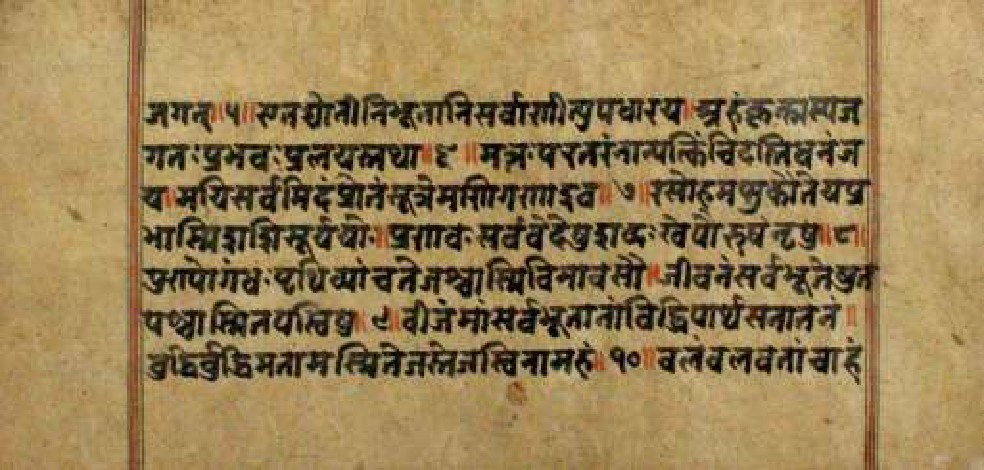 जगत् ॥ ५ ॥ एतद्योनीनि भूतानि सर्वाणीत्युपधारय ॥ अहं कृत्स्नस्य ज
गतः प्रभवः प्रलयस्तथा ॥ ६ ॥ मत्तः परतरं नान्यत्किंचिदस्ति धनंज
य ॥ मयि सर्वमिदं प्रोतं सूत्रे मणिगणा इव ॥ ७ ॥ रसोहमप्सु कौंतेय प्र
भास्मि शशिसूर्ययोः ॥ प्रणवः सर्ववेदेषु शब्दः खे पौरुषं नृषु ॥ ८ ॥
पुण्योगंधः पृथिव्यां च तेजश्चास्मि विभावसौ ॥ जीवनं सर्वभूतेषु त
पश्चास्मि तपस्विषु ॥ ९ ॥ वीजं मां सर्वभूतानां विद्धि पार्थ सनातनं ॥
वुद्धिर्वुद्धिमतामस्मि तेजस्तेजस्विनामहं ॥ १० ॥ वलं वलवतां चाहं